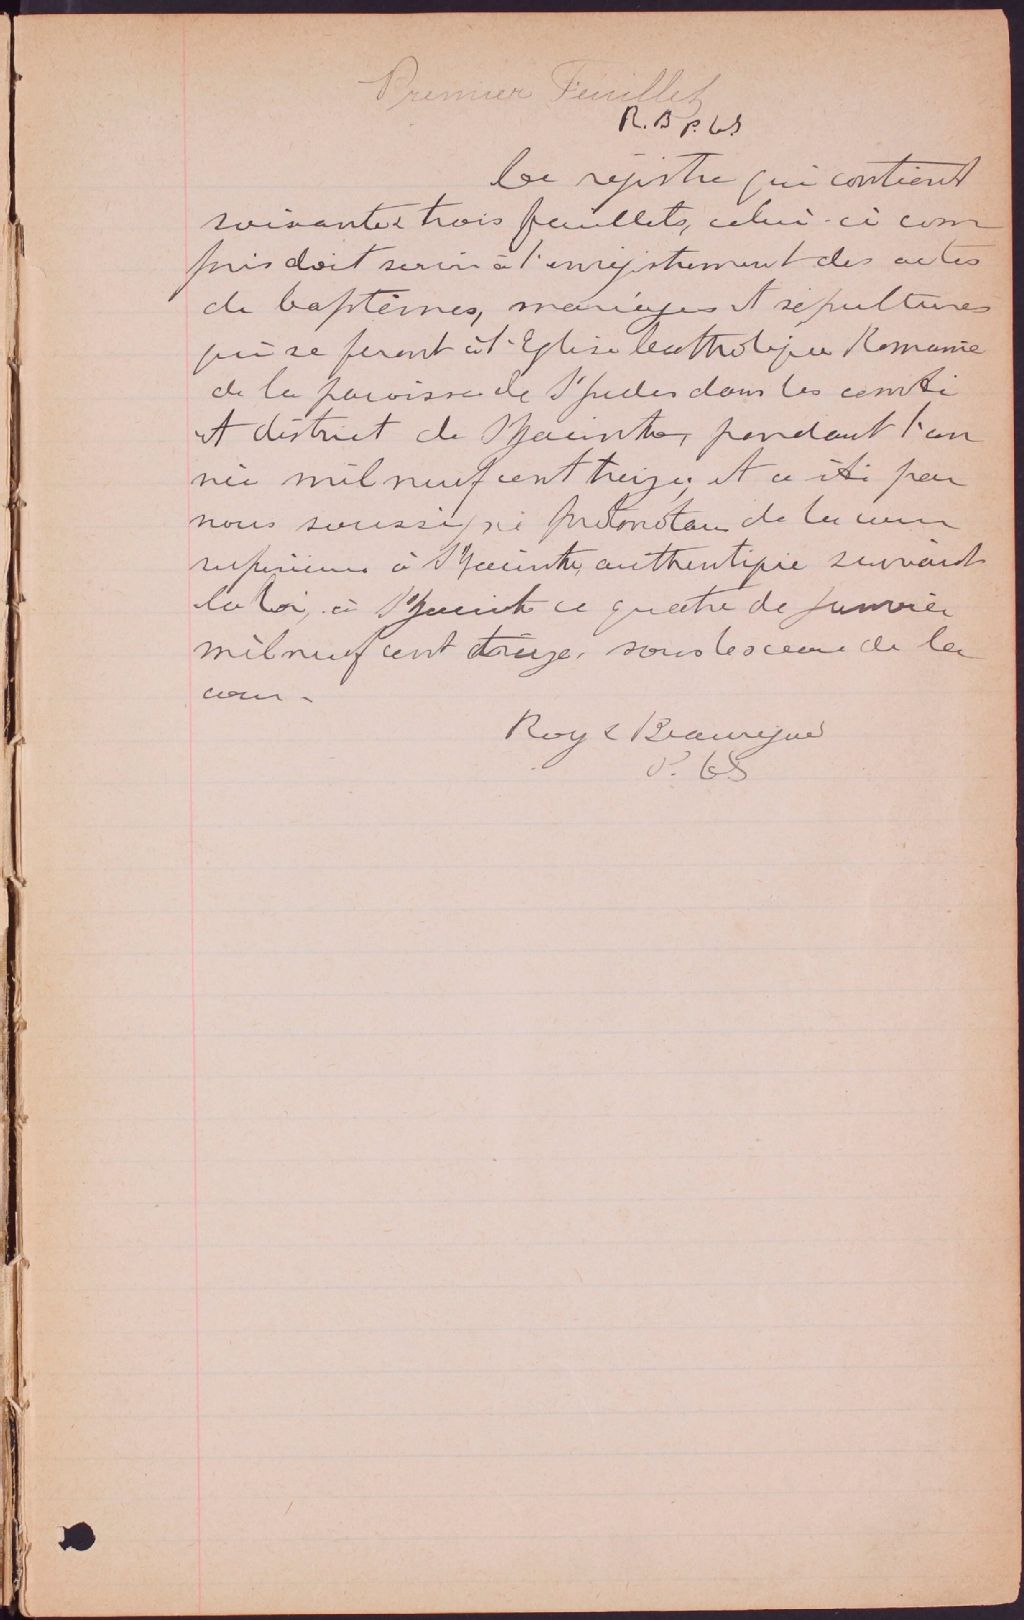 Premier Feuillet
R. B P. C. S
Ce régistre qui contient
soixante & trois feuillets, celui-ci com
pris doit servir à l'enrégistrement des actes
de baptêmes, mariages et sépultures
qui se feront à l'Eglise Catholique Romaine
de la paroisse de St Judes dans les comté
et district de St Hyacinthe, pendant l'an
née mil neuf cent treize, et a été par
nous soussigné protonotaire de la cour
supérieure à St Hyacinthe, authentiqué suivant
la loi, à St Hyacinthe ce quatre de janvier
mil neuf cent treize, sous le sceau de la
cour.
Roy & Beauregard
P. C S